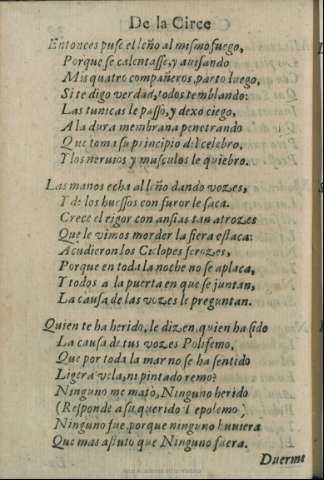 De la Circe
Entonces puse el leño al mismo fuego,
Porque se calentasse, y auisando
Mis quatro compañeros, parto luego,
Si te digo verdad, todos temblando:
Las tunicas le passo, y dexo ciego,
A la dura membrana penetrando
Que toma su principio del celebro,
Y los neruios y musculos le quiebro.
Las manos echa al leño dando vozes,
Y de los huessos con furor le saca.
Crece el rigor con ansias tan atrozes
Que le vimos morder la fiera estaca:
Acudieron los Ciclopes ferozes,
Porque en toda la noche no se aplaca,
Y todos a la puerta en que se juntan,
La causa de las vozes le preguntan.
Quien te ha herido, le dizen, quien ha sido
La causa de tus vozes Polifemo,
Que por toda la mar no se ha sentido
Ligera vela, ni pintado remo?
Ninguno me mató, Ninguno herido
(Responde a su querido
Ninguno fue, porque ninguno huuiera
Que mas astuto que Ninguno fuera.
Duerme